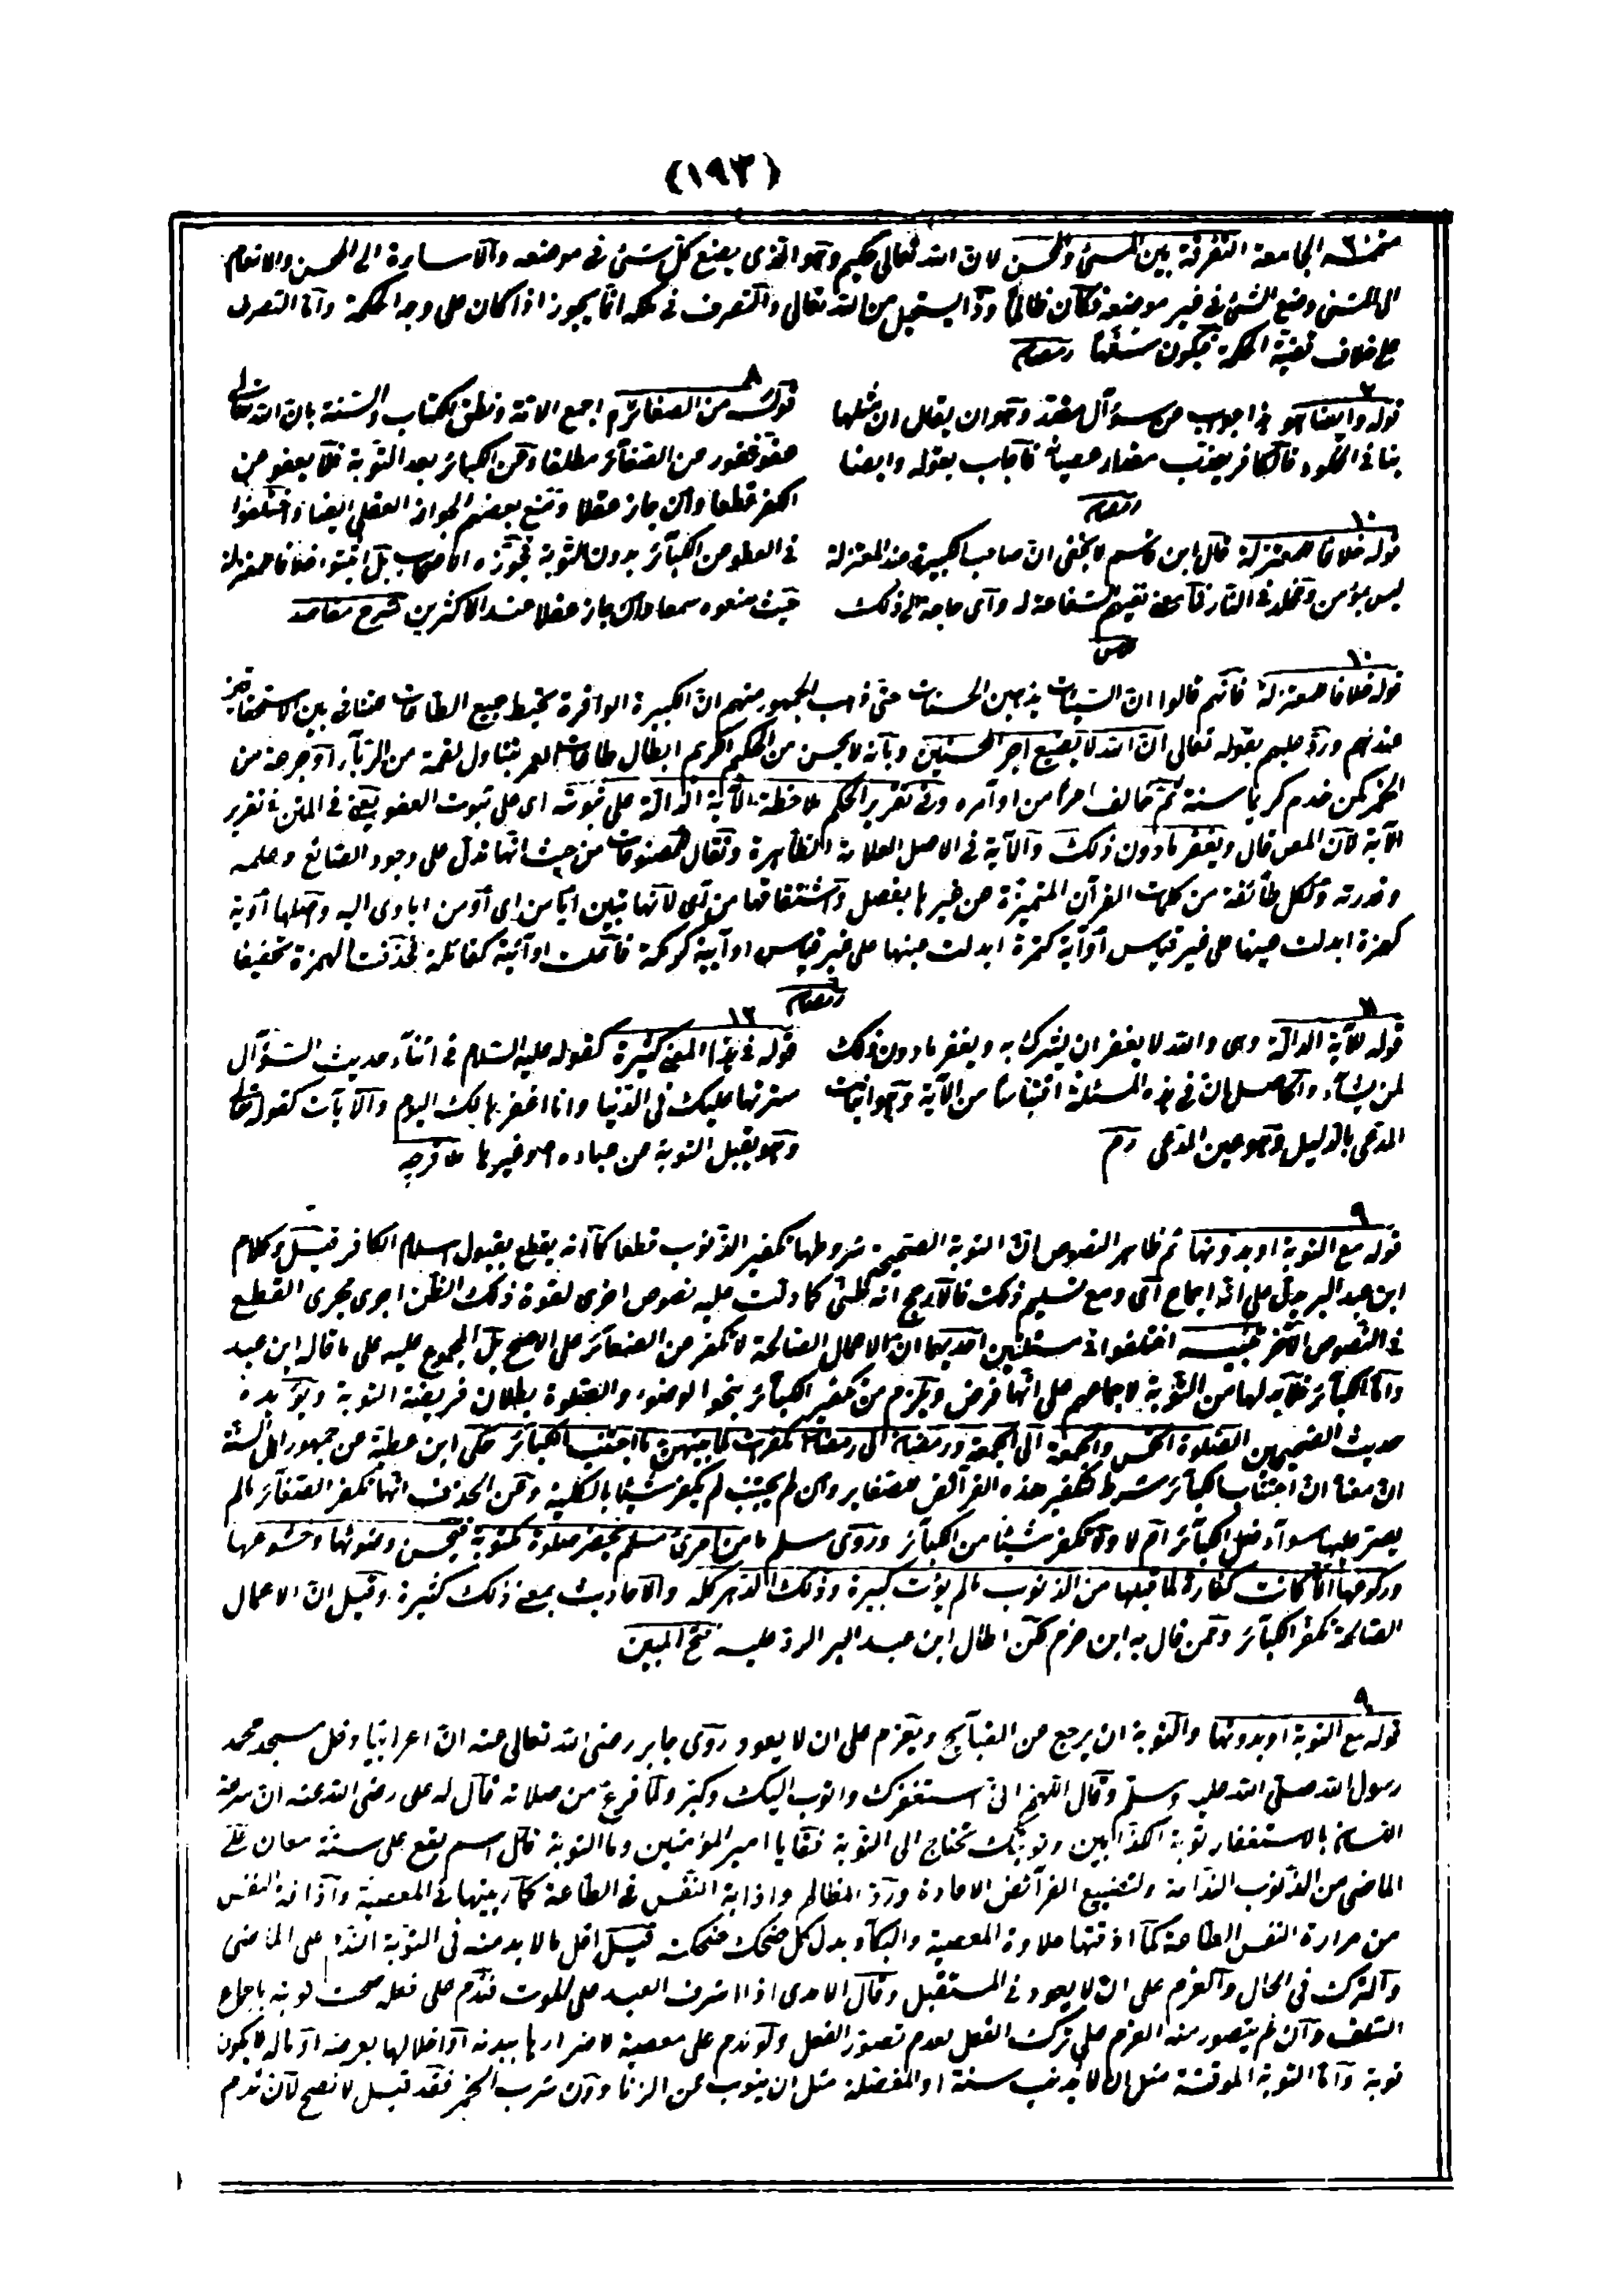 (١٩٣)
الجامعة التفرقة بين المسئ والمحسن لان الله تعالى حكيم وهو الذى يضع كل شئ فى موضعه والاساءة الى المحسن والانعام
الى المسئ وضع الشئ فى غير موضعه فكان ظالما وذا يستحيل من الله تعالى والتصرف فى ملكه انما يجوز اذا كان على وجه الحكمة واما التصرف
على خلاف قضية الحكمة فيكون سفها رمضان
٦
قوله وايضا هو هذا جواب عن سؤال مقدر وهو ان يقال ان مثلها
بنا فى الخلود فالكافر يعذب مقدار عصيانه فاجاب بقوله وايضا
رمضان
١٠
قوله خلافا للمعتزلة قال ابن قاسم لا يخفى ان صاحب الكبيرة عند المعتزلة
ليس بمؤمن ومخلد فى النار فاى معنى نفيهم الشفاعة له واى حاجة الى ذلك
٨
قوله من الصغائر م اجمع الامة ونطق الكتاب والسنة بان الله تعالى
عفو غفور عن الصغائر مطلقا وعن الكبائر بعد التوبة فلا يعفو عن
الكفر قطعا وان جاز عقلا ومنع بعضهم الجواز العقلى ايضا واختلفوا
فى العفو عن الكبائر بدون التوبة فجوزه الاصحاب بل اثبتوا خلافا للمعتزلة
حيث منعوه سمعا وان جاز عقلا عند الاكثرين شرح مقاصد
١٠
قوله خلافا للمعتزلة فانهم قالوا ان السيئات يذهبن الحسنات حتى ذهب الجمهور منهم ان الكبيرة الواحدة تحبط جميع الطاعات منافى بين الاستحقاقين
عندهم ورد عليهم بقوله تعالى ان الله لا يضيع اجر المحسنين وبانه لا يحسن من الحكيم الكريم ابطال طاعات العمر بتناول لقمة من الربا او جرعة من
الخمر كمن خدم كريما سنة ثم خالف امرا من اوامره وفى تقرير الحكم ملاحظة الآية الدالة على ثبوته اى على ثبوت العفو يعنى فى المتن فى تقرير
الآية لان المص قال ويغفر ما دون ذلك والآية فى الاصل العلامة الظاهرة وتقال للمصنوعات من حيث انها تدل على وجود الصانع وعلمه
وقدرته ولكل طائفة من كلمات القرآن المتميزة عن غيرها بفصل واشتقاقها من اى لانها تبين ايا من اى او من اوى اليه واصلها اوية
كهمزة ابدلت عينها على غير قياس او اية كتمرة ابدلت عينها على غير قياس او ايية كرمكة فاعلت او آئية كقائلة فحذفت الهمزة تخفيفا
رمضان
١١
قوله للآية الدالة وهى والله لا يغفر ان يشرك به ويغفر ما دون ذلك
لمن يشاء والحاصل ان فى هذه المسئلة اقتباسا من الآية وهو اثبات
المدعى بالدليل وهو عين المدعى رم
١٢
قوله فى هذا المعنى كثيرة كقوله عليه السلام فى اثناء حديث السؤال
سترتها عليك فى الدنيا وانا اغفرها لك اليوم والآيات كقوله تعالى
وهو يقبل التوبة عن عباده وغيرها
٩
قوله مع التوبة او بدونها ثم ظاهر النصوص ان التوبة الصحيحة بشروطها تكفير الذنوب قطعا كما انه يقطع بقبول اسلام الكافر قيل وكلام
ابن عبد البر يدل على انه اجماع اى ومع تسليم ذلك فالارجح انه ظنى كما دلت عليه نصوص اخرى لقوة ذلك الظن اجرى مجرى القطع
فى النصوص الاخر تنبيه اختلفوا فى مسئلتين احديهما ان الاعمال الصالحة لا تكفر من الصغائر على الاصح بل المجموع عليه على ما قاله ابن عبد
واما الكبائر فلا بد لها من التوبة لاجماعهم على انها فرض ويلزم من تكفير الكبائر بنحو الوضوء والصلوة بطلان فريضة التوبة ويؤيده
حديث الصحيحين الصلوة الخمس والجمعة الى الجمعة ورمضان الى رمضان مكفرات لما بينهن ما اجتنب الكبائر حكى ابن عطية عن جمهور اهل السنة
ان معناه ان اجتناب الكبائر شرط لتكفير هذه الفرائض للصغاير وان لم يجتنب لم يكفر شيئا بالكلية وعن الحذاق انها تكفر الصغائر ما لم
يصر عليها سواء فعل الكبائر ام لا ولا تكفر شيئا من الكبائر وروى مسلم ما من امرئ مسلم يحضر صلوة مكتوبة فيحسن وضوئها وخشوعها
وركوعها الا كانت كفارة لما قبلها من الذنوب ما لم يؤت كبيرة وذلك الدهر كله والاحاديث بمعنى ذلك كثيرة وقيل ان الاعمال
الصالحة تكفر الكبائر وممن قال به ابن حزم لكن اطال ابن عبد البر الرد عليه فتح المبين
٩
قوله مع التوبة او بدونها والتوبة ان يرجع عن القبايح ويعزم على ان لا يعود روى جابر رضى الله تعالى عنه ان اعرابيا دخل مسجد محمد
رسول الله صلى الله عليه وسلم وقال اللهم انى استغفرك واتوب اليك وكبر ولما فرغ من صلاته قال له على رضى الله عنه ان سرعة
اللسان بالاستغفار توبة الكذابين وتوبتك تحتاج الى التوبة فقال يا امير المؤمنين وما التوبة قال اسم يقع على ستة معان على
الماضى من الذنوب الندامة ولتضييع الفرائض الاعادة ورد المظالم واذابة النفس فى الطاعة كما ربيتها فى المعصية واذاقة النفس
من مرارة النفس الطاعة كما اذقتها حلاوة المعصية والبكاء بدل كل ضحك ضحكته قيل اقل ما لا بد منه فى التوبة الندم على الماضى
والترك فى الحال والعزم على ان لا يعود فى المستقبل وقال الامدى اذا اشرف العبد على الموت فندم على فعله صحت توبته باجماع
السلف وان لم يتصور منه العزم على ترك الفعل لعدم تصور الفعل ولو ندم على معصية لاضرارها ببدنه او اخلالها بعرضه او ماله لا يكون
توبة واما التوبة الموقتة مثل ان لا يذنب سنة او المفصلة مثل ان يتوب عن الزنا دون شرب الخمر فقد قيل لا تصح لان ندم